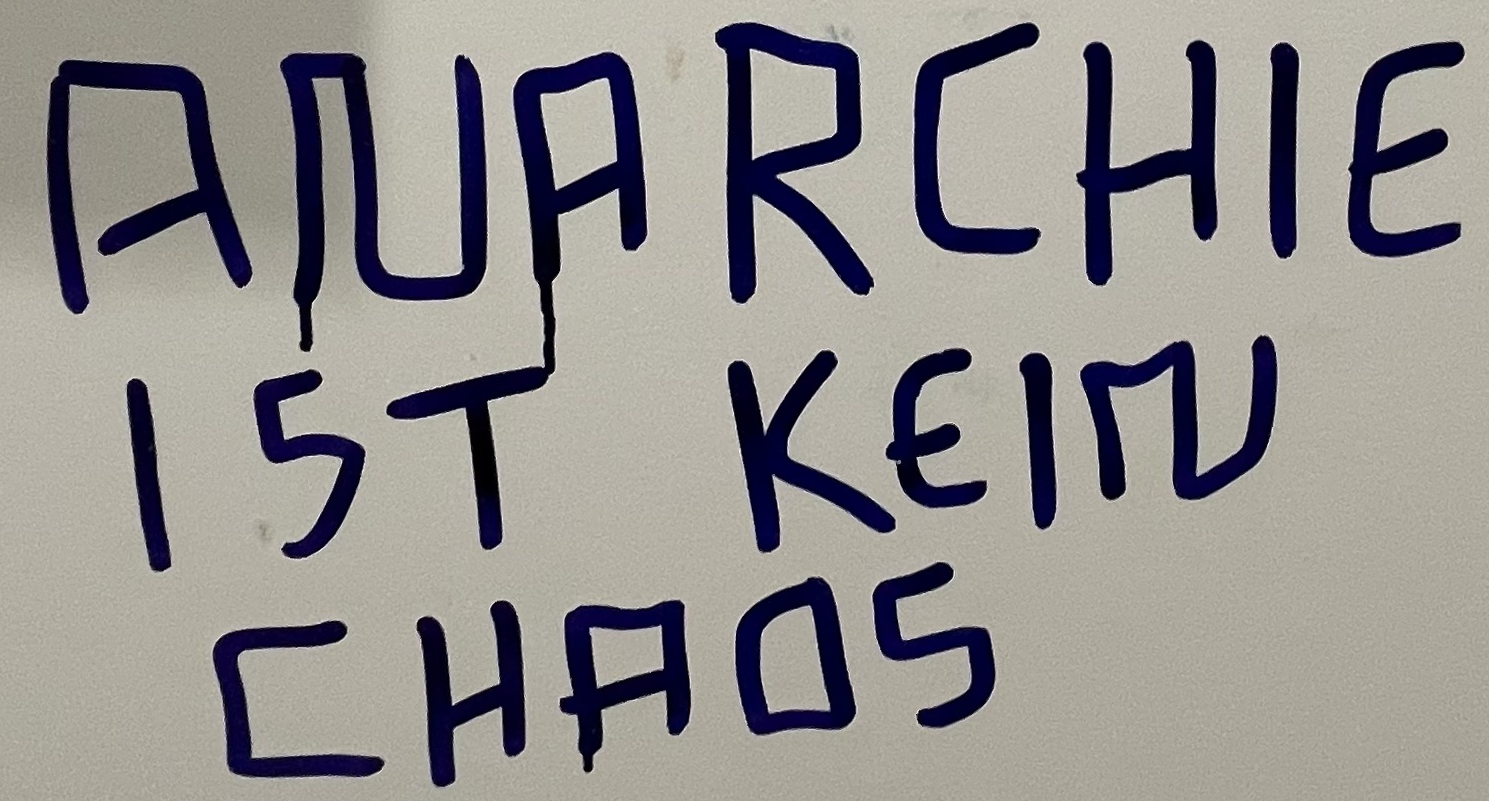 ANARCHIE
IST KEIN
CHAOS